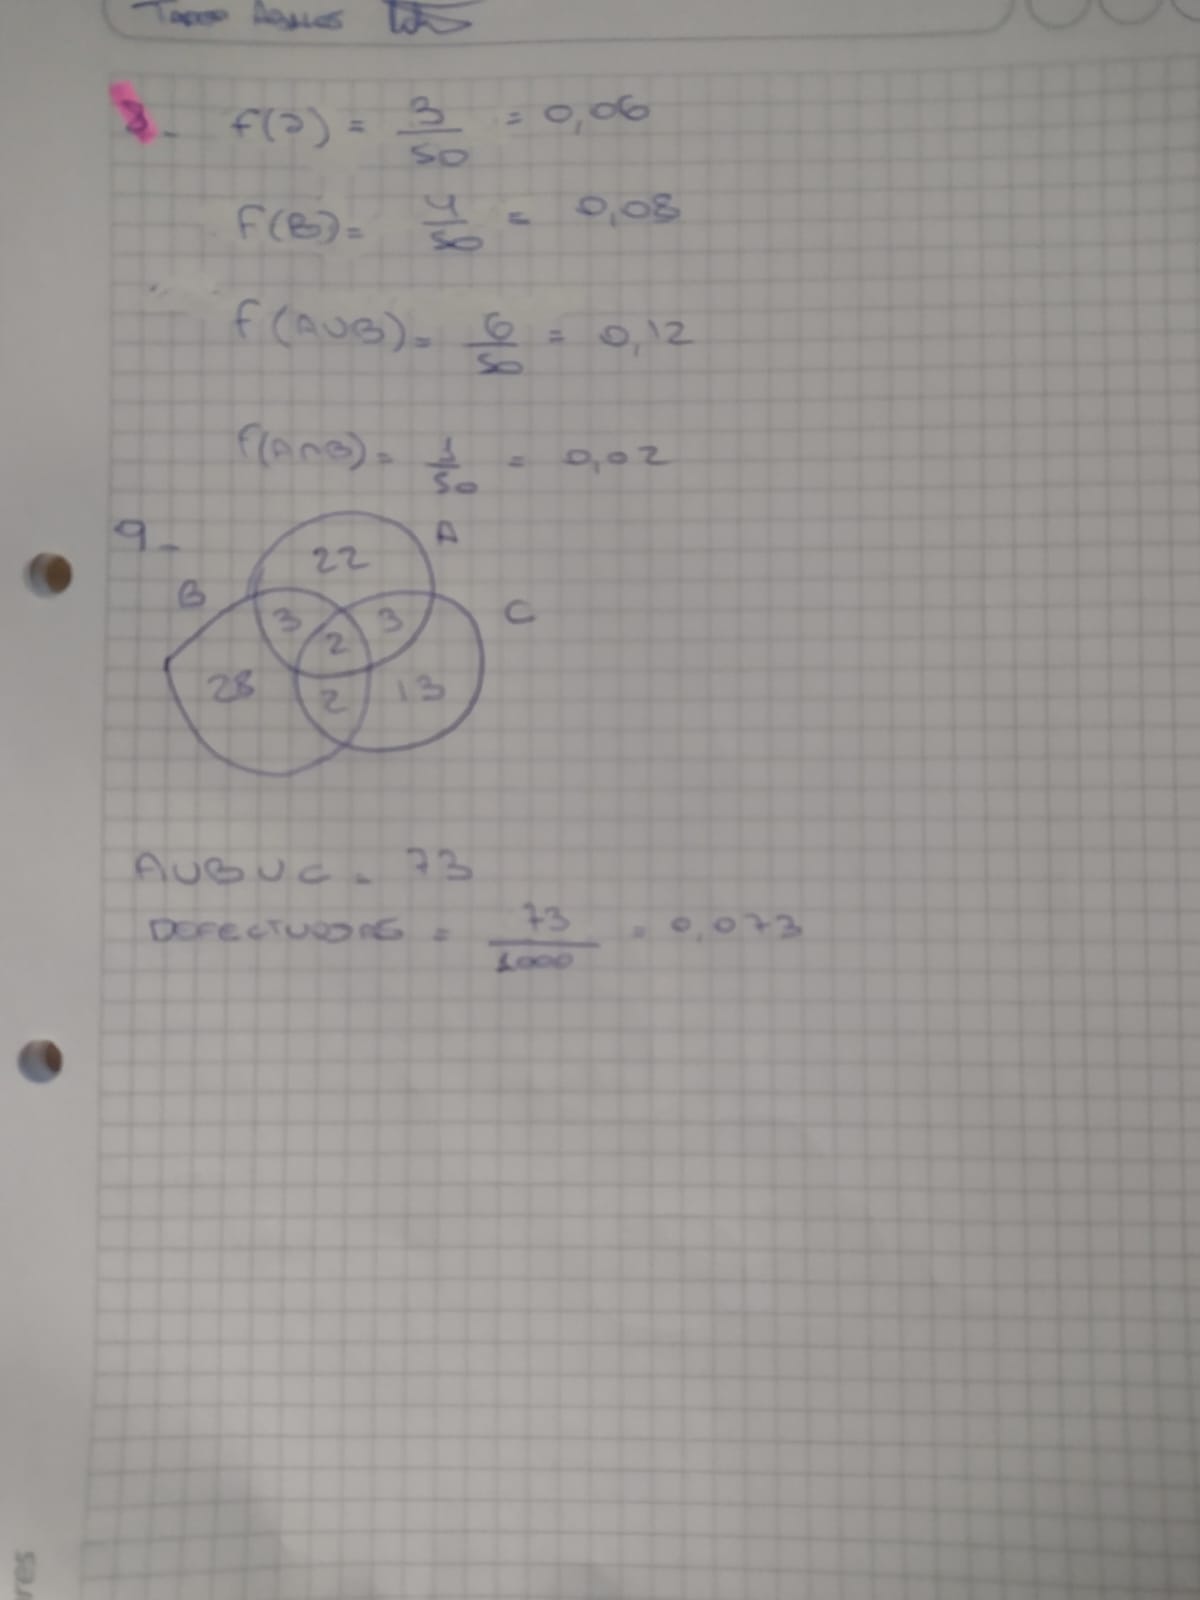 f(2) = 3/50 = 0,06
f(B) = 4/50 = 0,08
f(A∪B) = 6/50 = 0,12
f(A∩B) = 1/50 = 0,02
9-
A
22
B
C
3
3
2
28
2
13
A∪B∪C = 73
DEFECTUOSAS = 73/1000 = 0,073
res